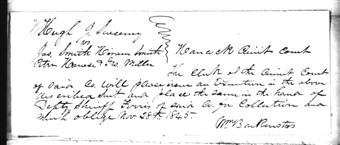 Hugh J. Sweeny
vs
Jas. Smith Hiram Smith
Peter Hawes & Geo. Miller
Hancock Circuit Court
The Clerk of the Circuit Court
of said Co. will please issue an Execution in the above
described suit and place the same in the hands of
Depty Sheriff of said Co. for Collection and
much oblige Nov 28th 1845.
Wm